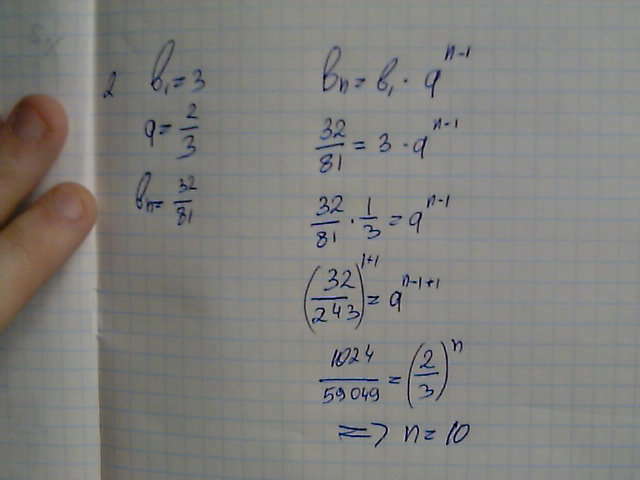 2 b₁ = 3
q = 2/3
bn = 32/81
bn = b₁ · q^(n-1)
32/81 = 3 · q^(n-1)
32/81 · 1/3 = q^(n-1)
(32/243)^(1+1) = q^(n-1+1)
1024/59049 = (2/3)^n
=> n = 10